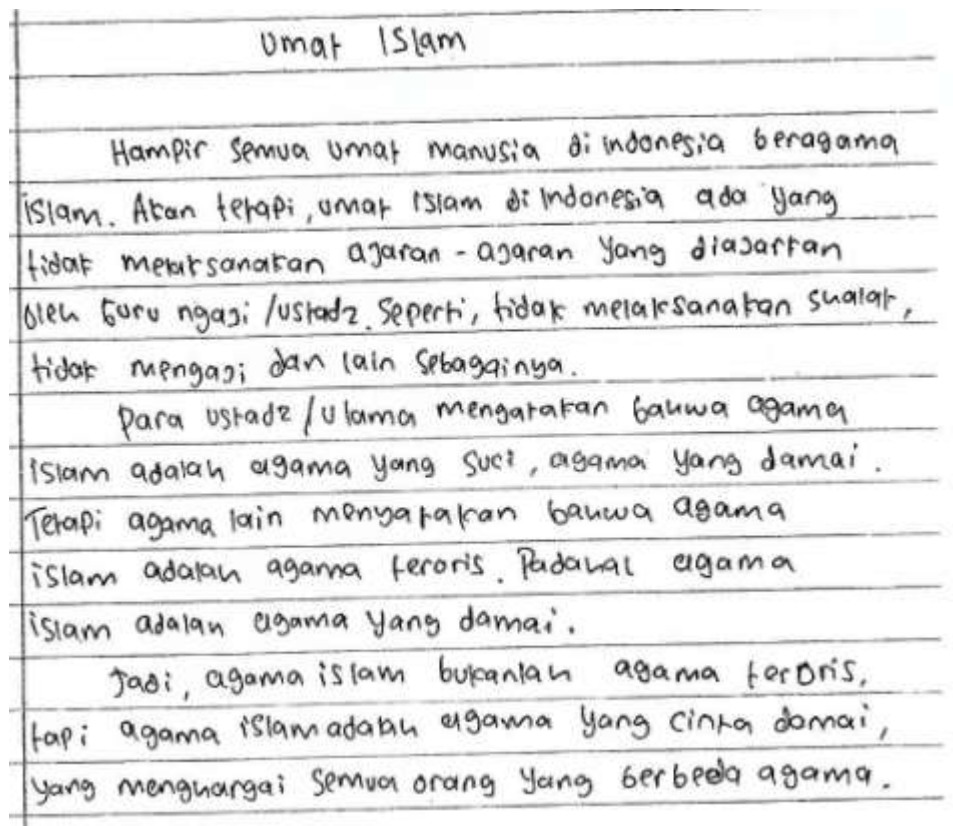 Umat Islam
Hampir semua umat manusia di indonesia beragama
islam. Akan tetapi, umat islam di Indonesia ada yang
tidak melaksanakan ajaran-ajaran yang diajarkan
oleh Guru ngaji/ustadz. Seperti, tidak melaksanakan shalat,
tidak mengaji dan lain sebagainya.
Para ustadz/ulama mengatakan bahwa agama
islam adalah agama yang suci, agama yang damai.
Tetapi agama lain menyatakan bahwa agama
islam adalah agama teroris. Padahal agama
islam adalah agama yang damai.
Jadi, agama islam bukanlah agama teroris,
tapi agama islam adalah agama yang cinta damai,
yang menghargai semua orang yang berbeda agama.